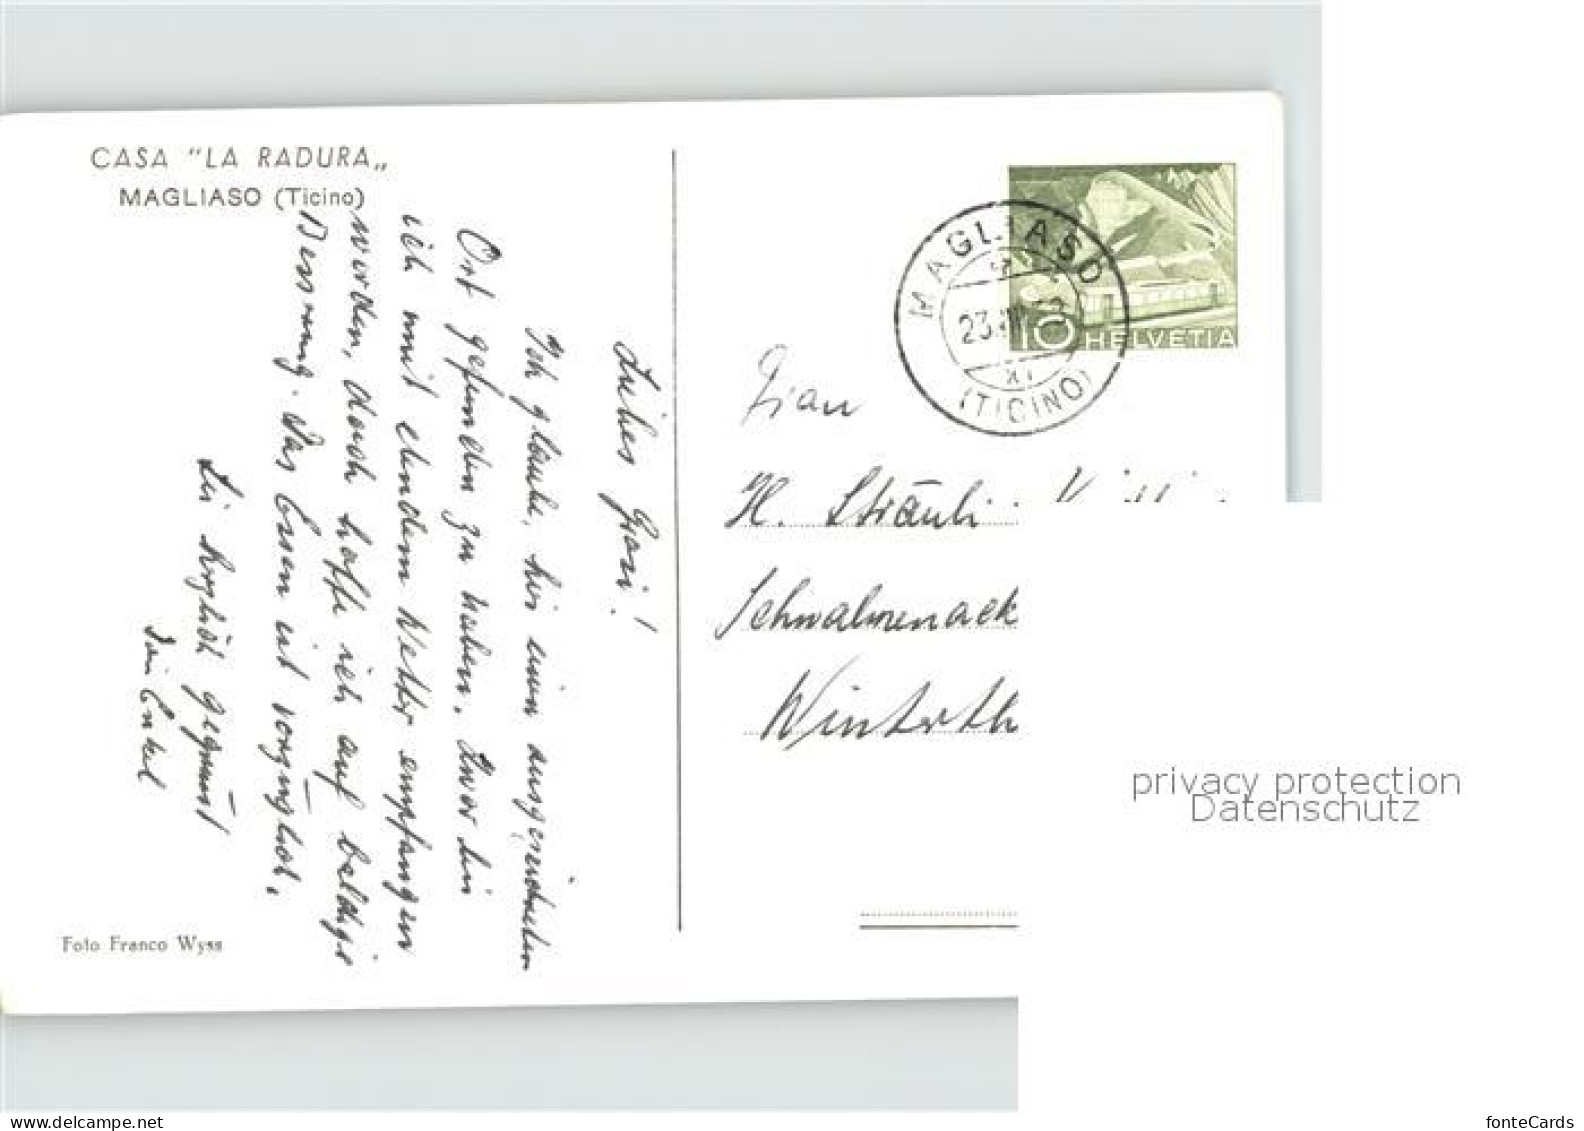 CASA "LA RADURA„
MAGLIASO (Ticino)
Liebes Grosi!
Ich glaube, hier einen ausgezeichneten
Ort gefunden zu haben. Zwar bin
ich mit elendem Wetter empfangen
worden, doch hoffe ich auf baldige
Besserung. Das Essen ist vorzüglich.
Sei herzlich gegrüsst
Dein Enkel
Foto Franco Wyss
MAGLIASO
23.
XI
(TICINO)
10 HELVETIA
Frau
H. Sträuli
Schwalmenack
Winterth
privacy protection
Datenschutz
fonteCards